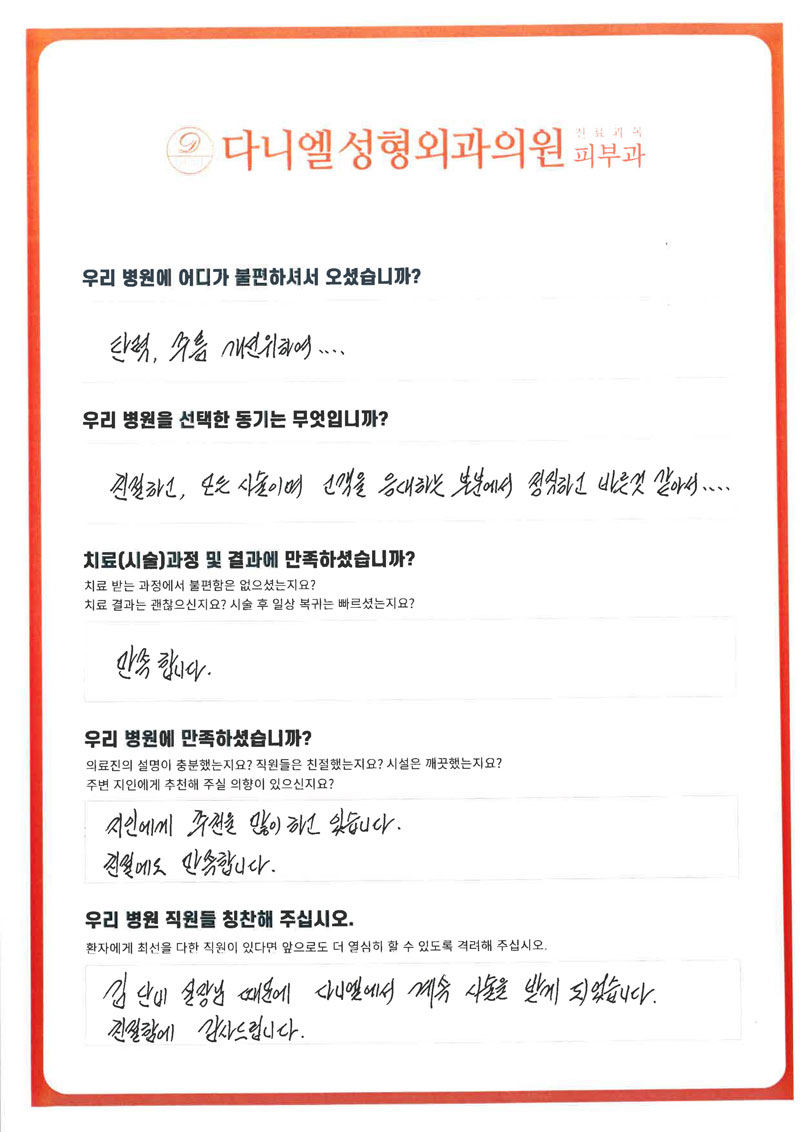 다니엘성형외과의원
진료과목
피부과
우리 병원에 어디가 불편하셔서 오셨습니까?
탄력, 주름 개선위하여....
우리 병원을 선택한 동기는 무엇입니까?
친절하고, 모든 시술이며 고객을 응대하는 부분에서 정직하고 바른것 같아서....
치료(시술)과정 및 결과에 만족하셨습니까?
치료 받는 과정에서 불편함은 없으셨는지요?
치료 결과는 괜찮으신지요? 시술 후 일상 복귀는 빠르셨는지요?
만족합니다.
우리 병원에 만족하셨습니까?
의료진의 설명이 충분했는지요? 직원들은 친절했는지요? 시설은 깨끗했는지요?
주변 지인에게 추천해 주실 의향이 있으신지요?
지인에게 추천을 많이 하고 있습니다.
친절에도 만족합니다.
우리 병원 직원들 칭찬해 주십시오.
환자에게 최선을 다한 직원이 있다면 앞으로도 더 열심히 할 수 있도록 격려해 주십시오.
김단비 실장님 때문에 다니엘에서 계속 시술을 받게 되었습니다.
친절함에 감사드립니다.